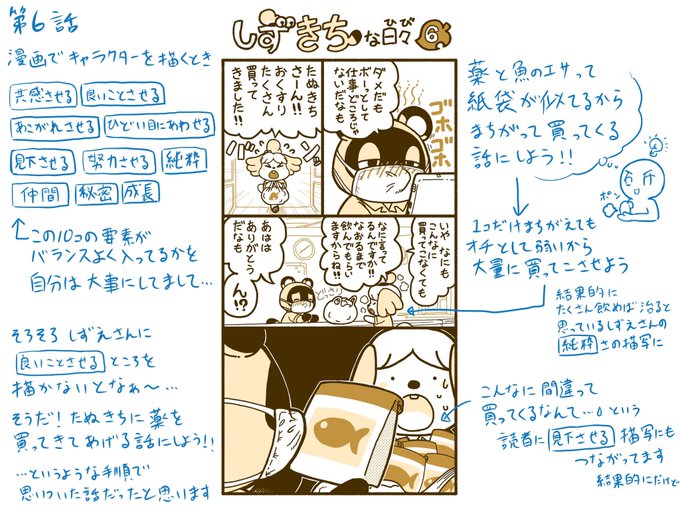 第6話
漫画でキャラクターを描くとき
共感させる
良いことさせる
あこがれさせる
ひどい目にあわせる
見下させる
努力させる
純粋
仲間
秘密
成長
この10コの要素が
バランスよく入ってるかを
自分は大事にしてまして…
そろそろ しずえさんに
良いことさせる ところを
描かないとなぁ〜…
そうだ! たぬきちに薬を
買ってきてあげる話にしよう!!
…というような手順で
思いついた話だったと思います
しずきちな日々 6
ひび
ダメだも
ボーっとして
仕事どころじゃ
ないだなも
ゴホ
ゴホ
ゴホ
たぬきち
さーん!!
おくすり
たくさん
買って
きました!!
バーン
いや、なにも
こんなに
買ってこなくても
なに言って
るんですか!!
なおるまで
飲んでもらい
ますからね!!
どさっ
あはは
ありがとう
だなも
ん!?
薬と魚のエサって
紙袋が似てるから
まちがって買ってくる
話にしよう!!
石斤
ポン
1コだけまちがえても
オチとして弱いから
大量に買ってこさせよう
結果的に
たくさん飲めば治ると
思っているしずえさんの
純粋 さの描写に
こんなに間違って
買ってくるなんて…。という
読者に 見下させる 描写にも
つながってます
結果的にだけど